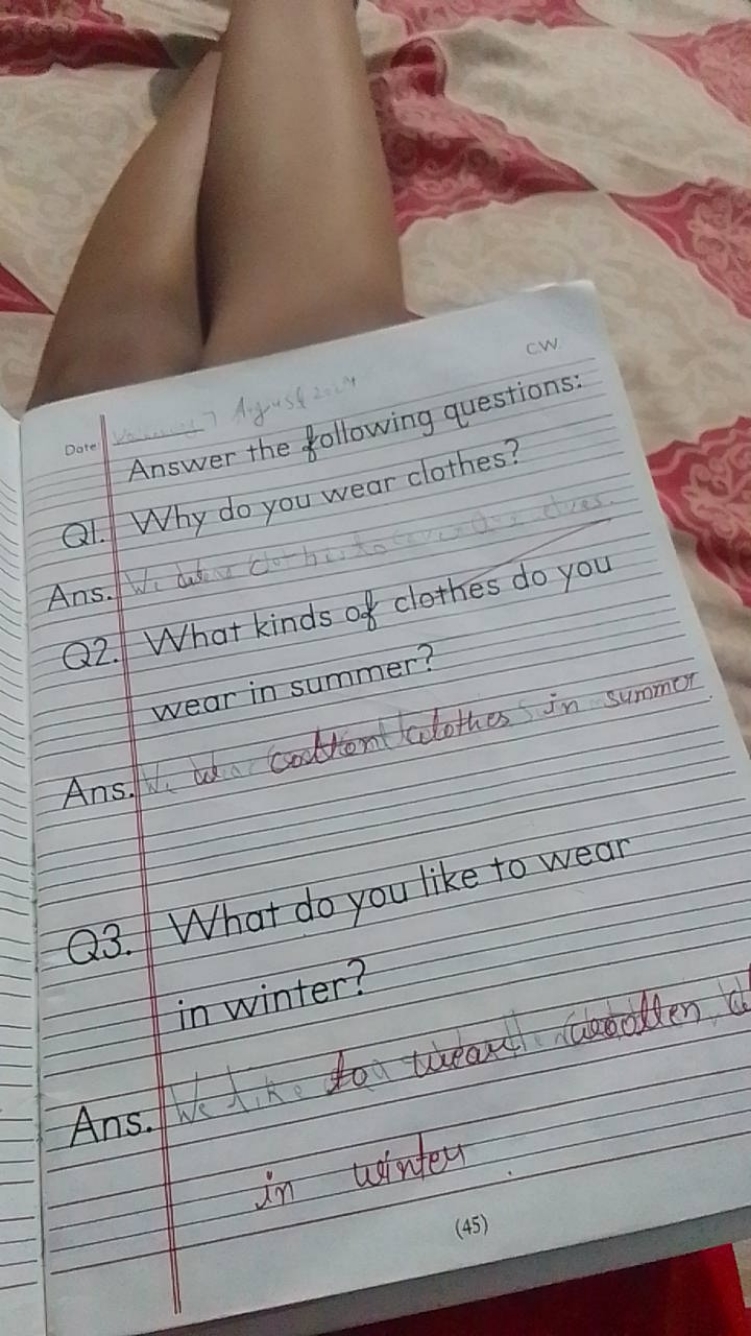 CW
Date: 7 August 2024
Answer the following questions:
Q1. Why do you wear clothes?
Ans. We clothes to
Q2. What kinds of clothes do you
wear in summer?
Ans. We cottont clothes in summer
Q3. What do you like to wear
in winter?
Ans. We like to wear woollen
in winter.
(45)